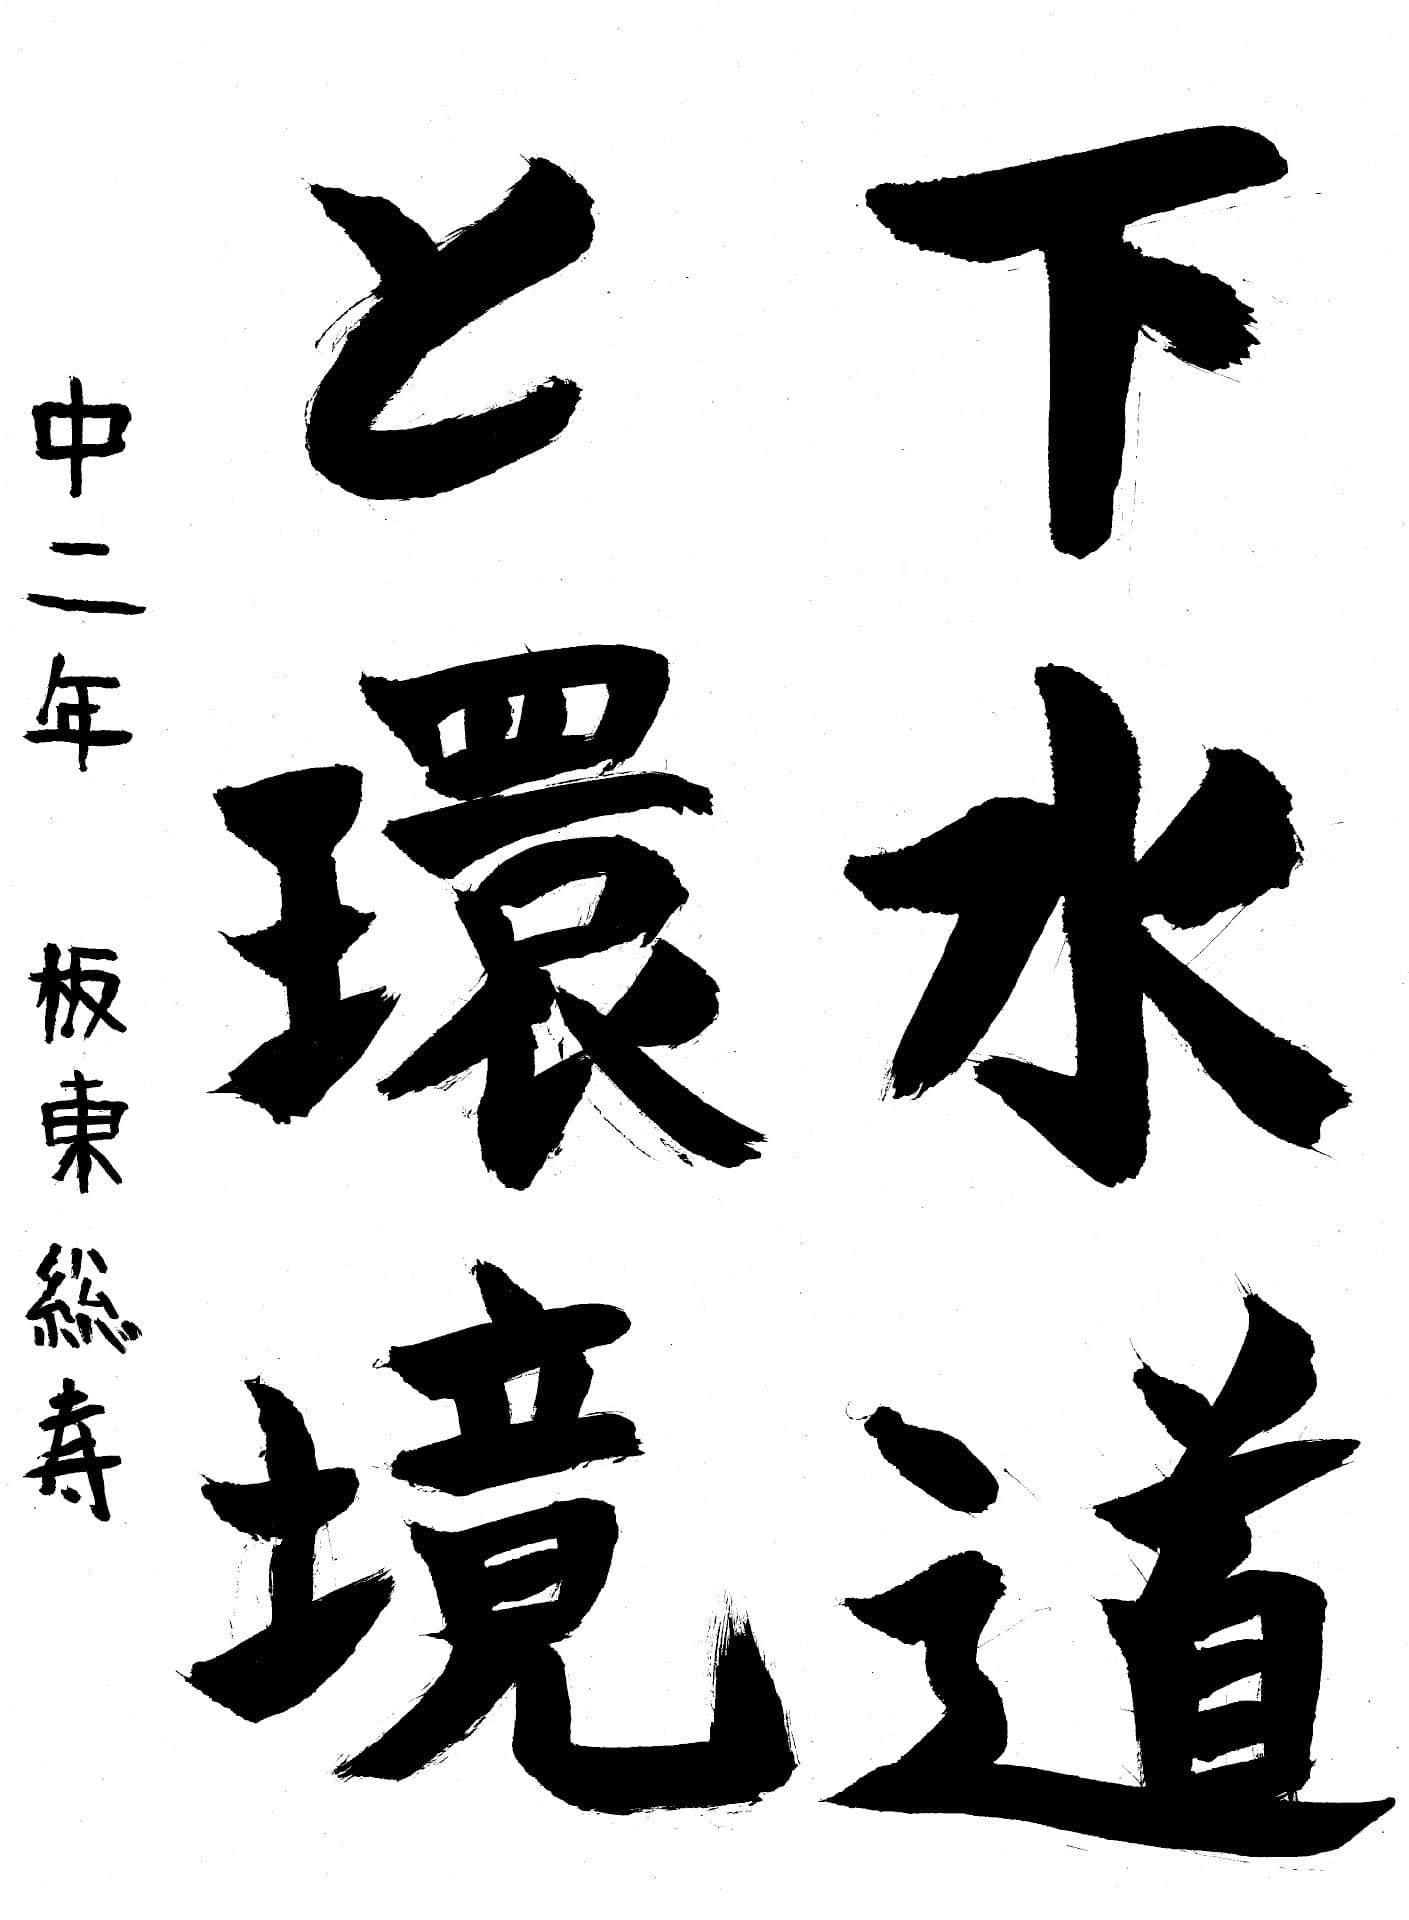 下水道
と環境
中二年 板東総寿